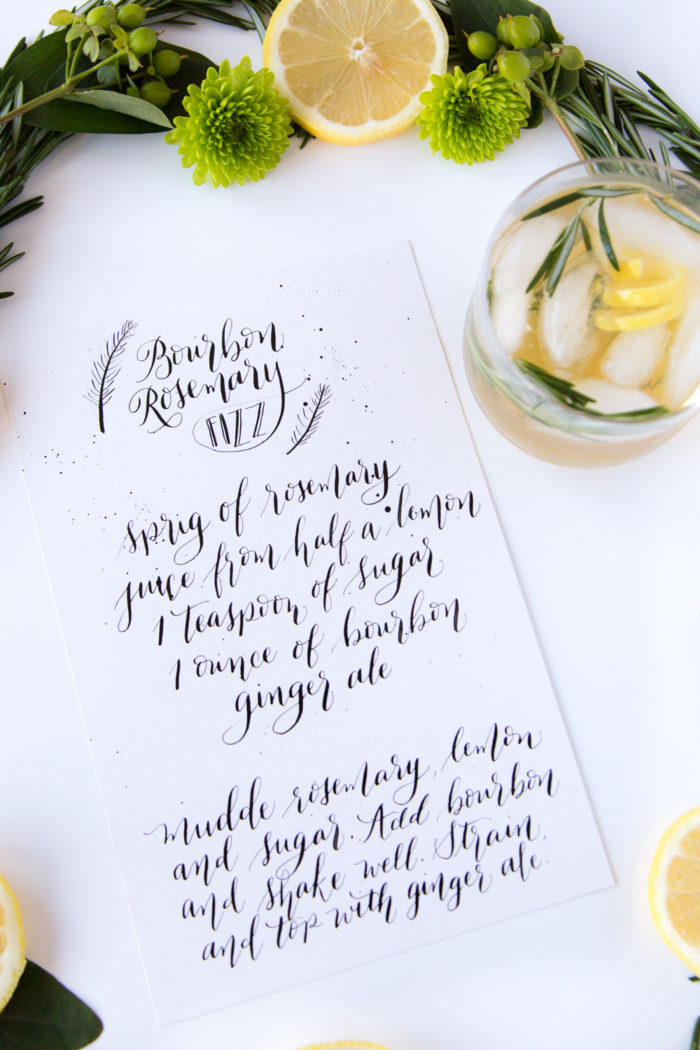 Bourbon
Rosemary
FIZZ
sprig of rosemary
juice from half a lemon
1 teaspoon of sugar
1 ounce of bourbon
ginger ale
mudde rosemary, lemon
and sugar. Add bourbon
and shake well. Strain,
and top with ginger ale.